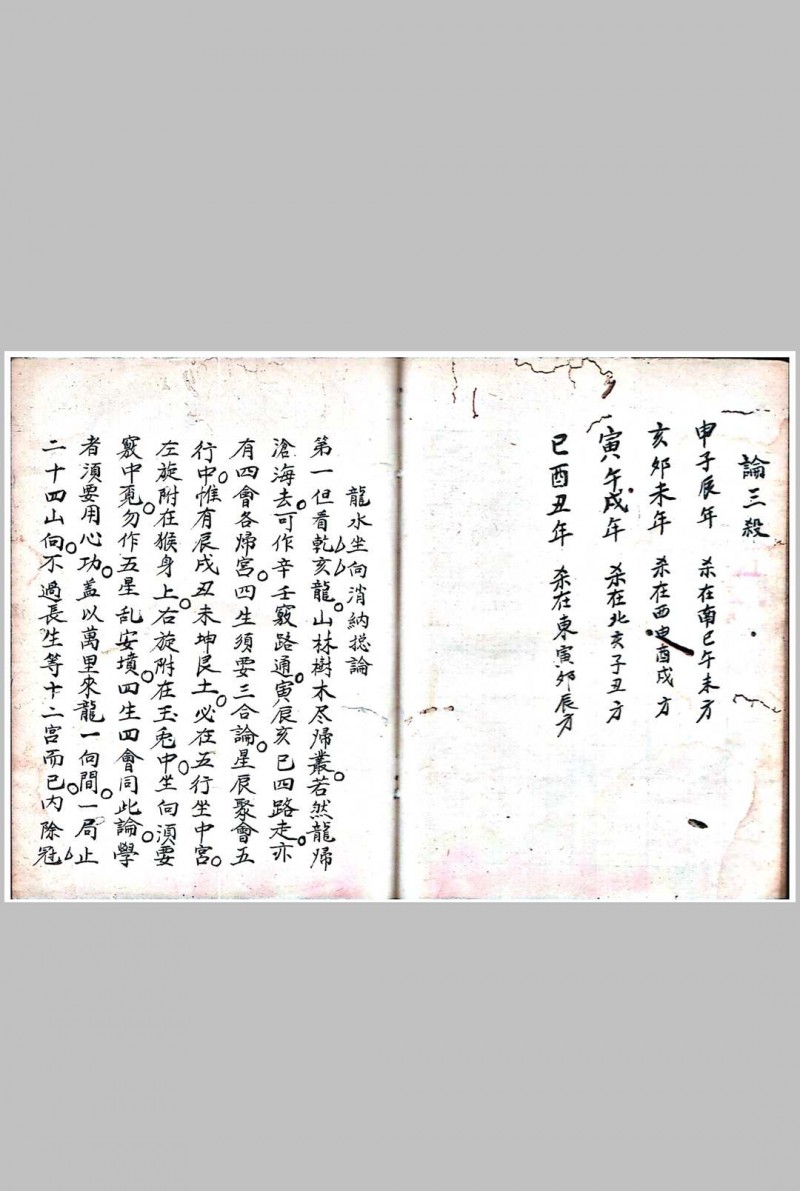 論三殺
申子辰年 杀在南巳午未方
亥卯未年 杀在西申酉戌方
寅午戌年 杀在北亥子丑方
巳酉丑年 杀在東寅卯辰方
龍水坐向消納捴論
第一但看乾亥龍。山林樹木尽歸叢。若然龍歸
滄海去。可作辛壬竅路通。寅辰亥巳四路走。亦
有四會各歸宮。四生須要三合論。星辰聚會五
行中。惟有辰戌丑未坤艮土。必在五行坐中宮。
左旋附在猴身上。右旋附在玉兎中。坐向須要
竅中覔。勿作五星乱安墳。四生四會同此論。學
者須要用心功。盖以萬里來龍一向間。一局止
二十四山向。不過長生等十二宮而已。内除冠